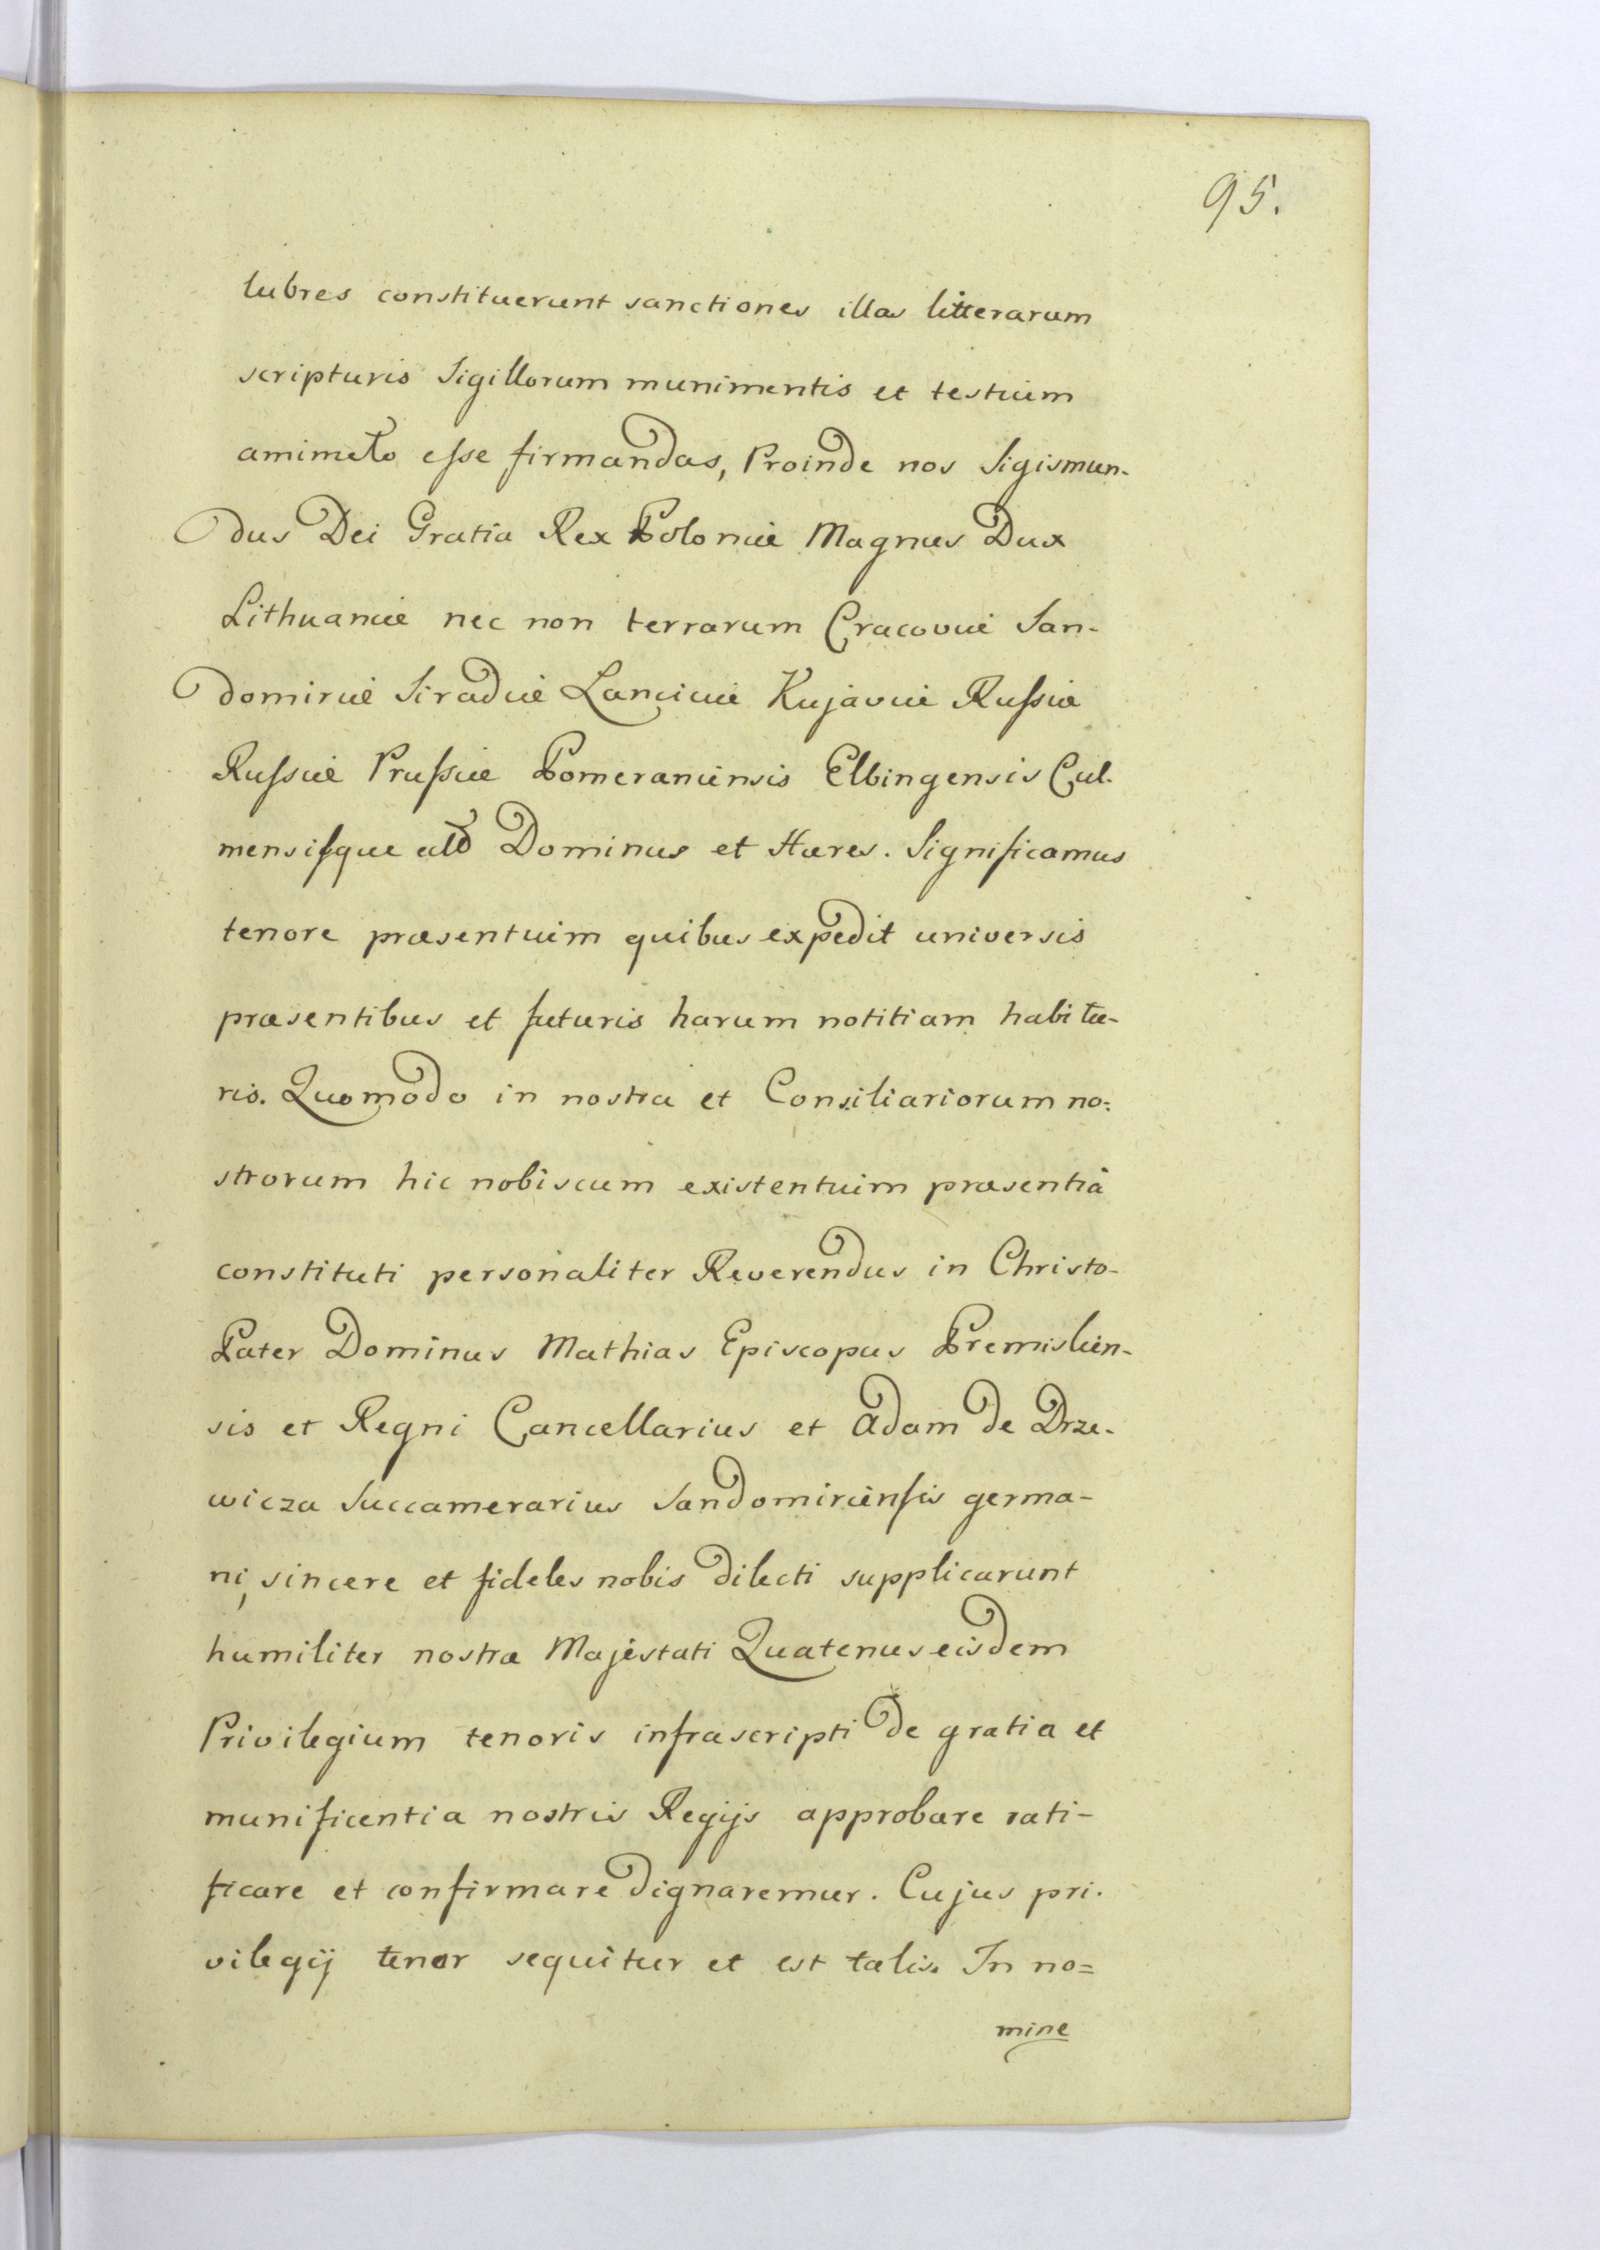 95.
lubres constituerunt sanctiones illas litterarum
scripturis Sigillorum munimentis et testium
esse firmandas, Proinde nos Sigismun-
dus Dei Gratia Rex Poloniæ Magnus Dux
Lithuaniæ nec non terrarum Cracoviæ San-
domiriæ Siradiæ Lanciciæ Kujaviæ Russiæ
Russiæ Prussiæ Pomeraniensis Elbingensis Cul-
mensisque Dominus et Hæres. Significamus
tenore præsentium quibus expedit universis
præsentibus et futuris harum notitiam habitu-
ris. Quomodo in nostra et Consiliariorum no-
strorum hic nobiscum existentium præsentia
constituti personaliter Reverendus in Christo
Pater Dominus Mathias Episcopus Premislien-
sis et Regni Cancellarius et Adam de Drze-
wicza Succamerarius Sandomiriensis germa-
ni, sincere et fideles nobis dilecti supplicarunt
humiliter nostræ Majestati Quatenus eisdem
Privilegium tenoris infrascripti de gratia et
munificentia nostris Regijs approbare rati-
ficare et confirmare dignaremur. Cujus pri-
vilegij tenor sequitur et est talis. In no=
mine